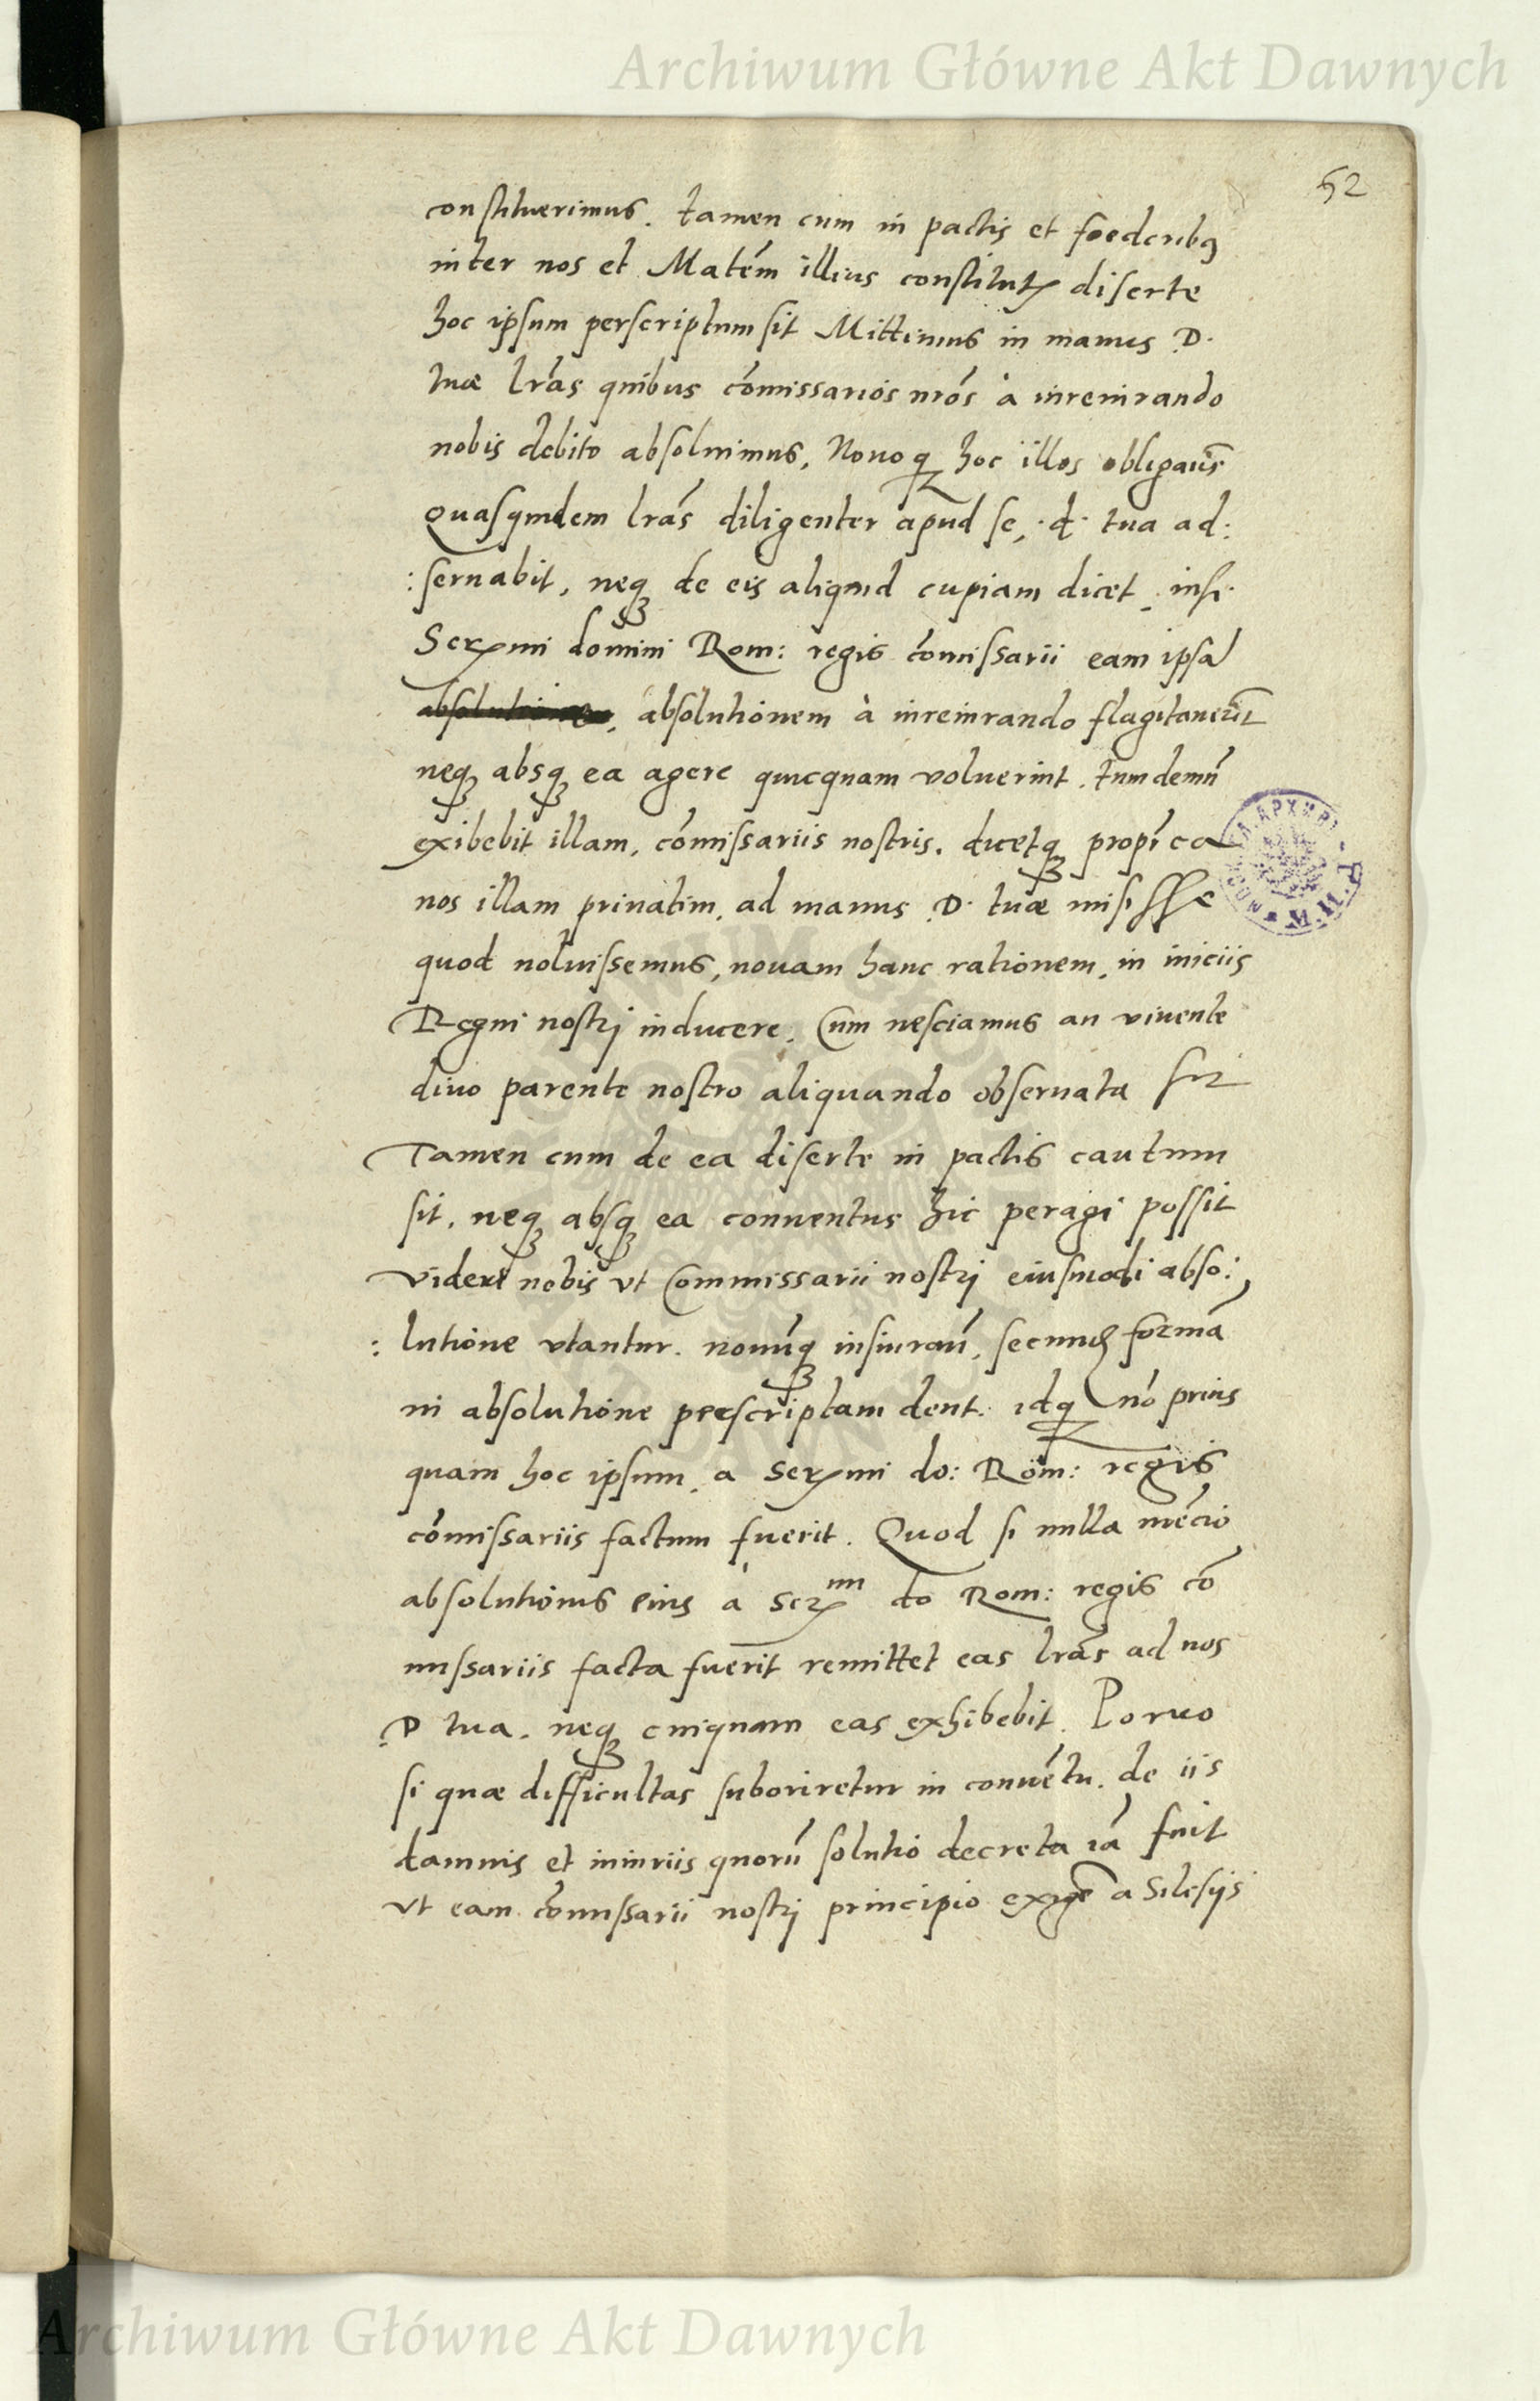 Archiwum Główne Akt Dawnych
52
constituerimus. tamen cum in pactis et foederibꝫ
inter nos et Matem̃ illius constitutꝭ diserte
hoc ipsum perscriptum sit Mittimus in manus D.
tuæ lr̃as quibus com̃issarios nr̃os à iureiurando
nobis debito absoluimus, Nouoqꝫ hoc illos obligam̃s
Quasquidem lr̃as diligenter apud se, d. tua ad:
:seruabit, neqꝫ de eis aliquid cupiam dicet, nisi
Serꝫmi domini Rom: regis com̃issarii eam ipsã
absolutionem, absolutionem à iureiurando flagitauerĩt
neqꝫ absqꝫ ea agere quicquam voluerint. tum demũ
exibebit illam, com̃issariis nostris. dicetqꝫ propt̃ ea
nos illam priuatim, ad manus D. tuæ misisse
quod noluissemus, nouam hanc rationem, in iniciis
Regni nostrj inducere. Cum nesciamus an viuente
diuo parente nostro aliquando obseruata sit
Tamen cum de ea diserte in pactis cautum
sit, neqꝫ absqꝫ ea conuentus hic peragi possit
videtr nobis vt Commissarii nostrj eiusmodi abso:
: lutione vtantur. nouũqꝫ iusiurañ, secund̃ formã
in absolutione prescriptam dent. idqꝫ nõ prius
quam hoc ipsum, a serꝫmi do: Rom: regis
com̃issariis factum fuerit. Quod si nulla mẽcio
absolutionis eius à serꝫmi do Rom: regis cõ
missariis facta fuerit remittet eas lr̃as ad nos
D tua. neqꝫ cuiquam eas exhibebit. Porro
si quæ difficultas suboriretur in conuẽtu. de iis
damnis et iniuriis quorũ solutio decreta iã fuit
vt eam com̃issarii nostrj principio exigẽ a Silesijs
Archiwum Główne Akt Dawnych